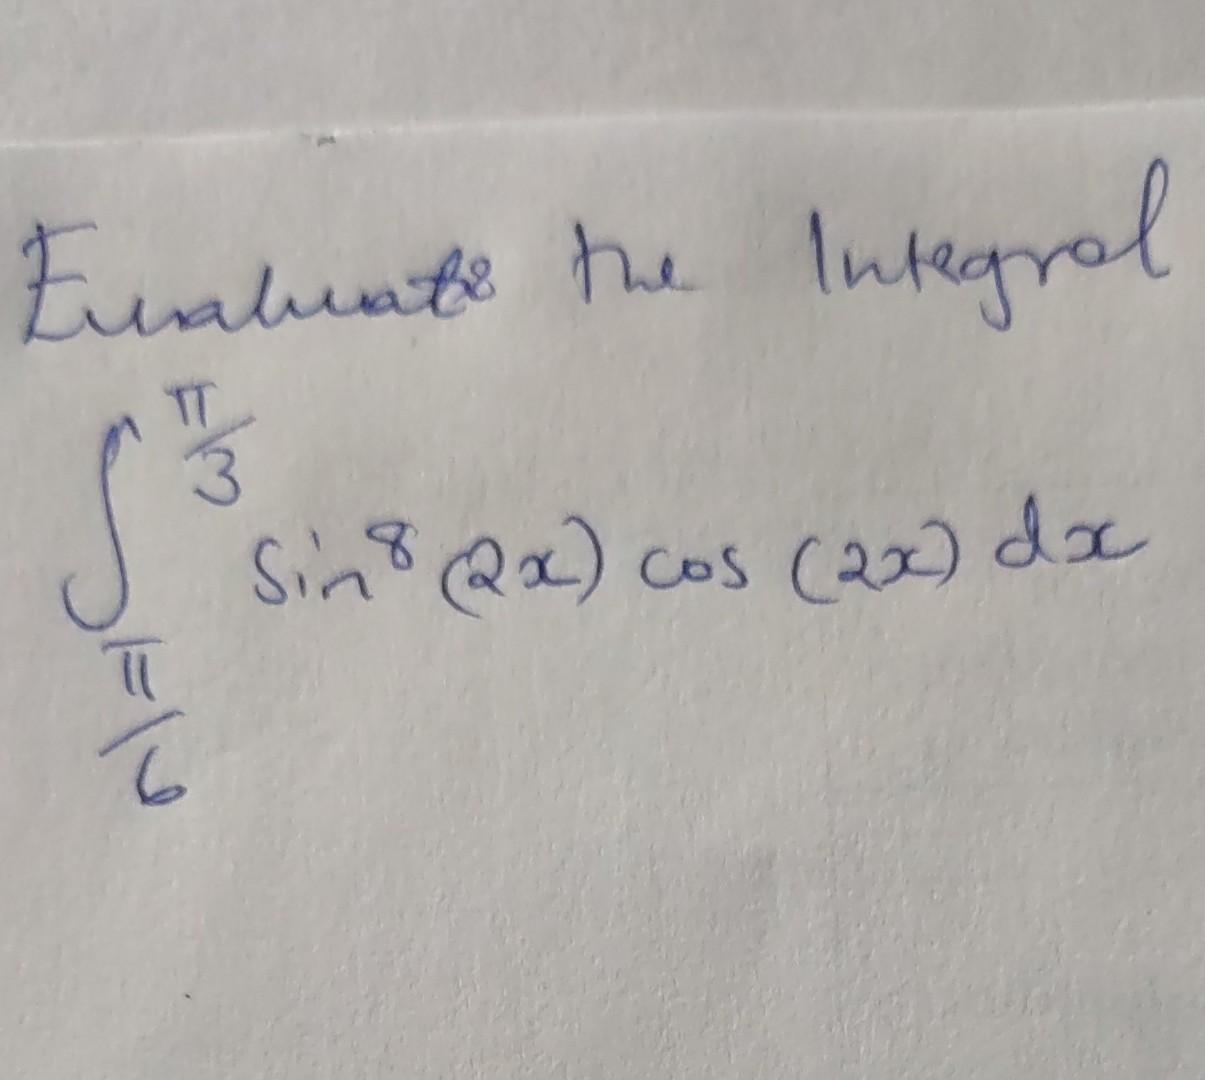 Evaluate the Integral
∫_{π/6}^{π/3} sin⁸(2x) cos (2x) dx